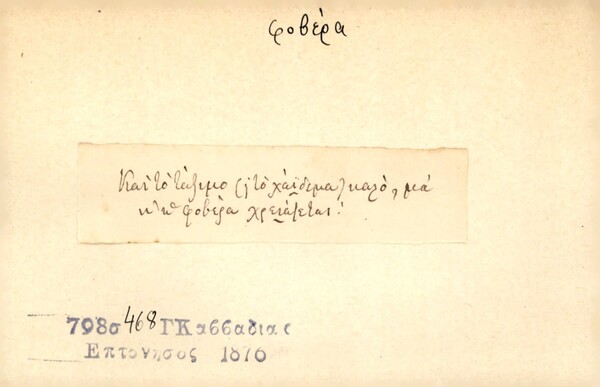 φοβέρα
Καὶ τὸ τάξιμο (ἢ τὸ χάϊδεμα) καλὸ, μὰ
κ' ἡ φοβέρα χρειάζεται!
798σ 468 ΓΚασσαδιας
Επτονησος 1876